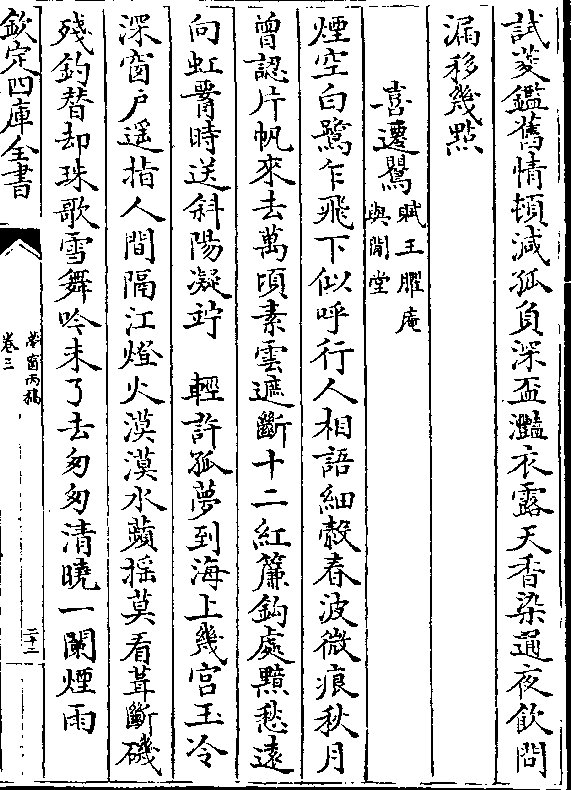 試菱鑑舊情頓減孤負深盃灩衣露天香染通夜飲問
漏移幾點
喜遷鶯
賦王臞庵
與閒堂
煙空白鷺乍飛下似呼行人相語細縠春波微痕秋月
曾認片帆來去萬頃素雲遮斷十二紅簾鈎處黯愁遠
向虹腰時送斜陽凝竚　輕許孤夢到海上幾宮玉冷
深窗戶遥指人間隔江燈火漠漠水蘋搖莫看葺斷磯
殘釣替却珠歌雪舞吟未了去匆匆清曉一闌煙雨
欽定四庫全書
夢窗丙稿
卷三
二十二